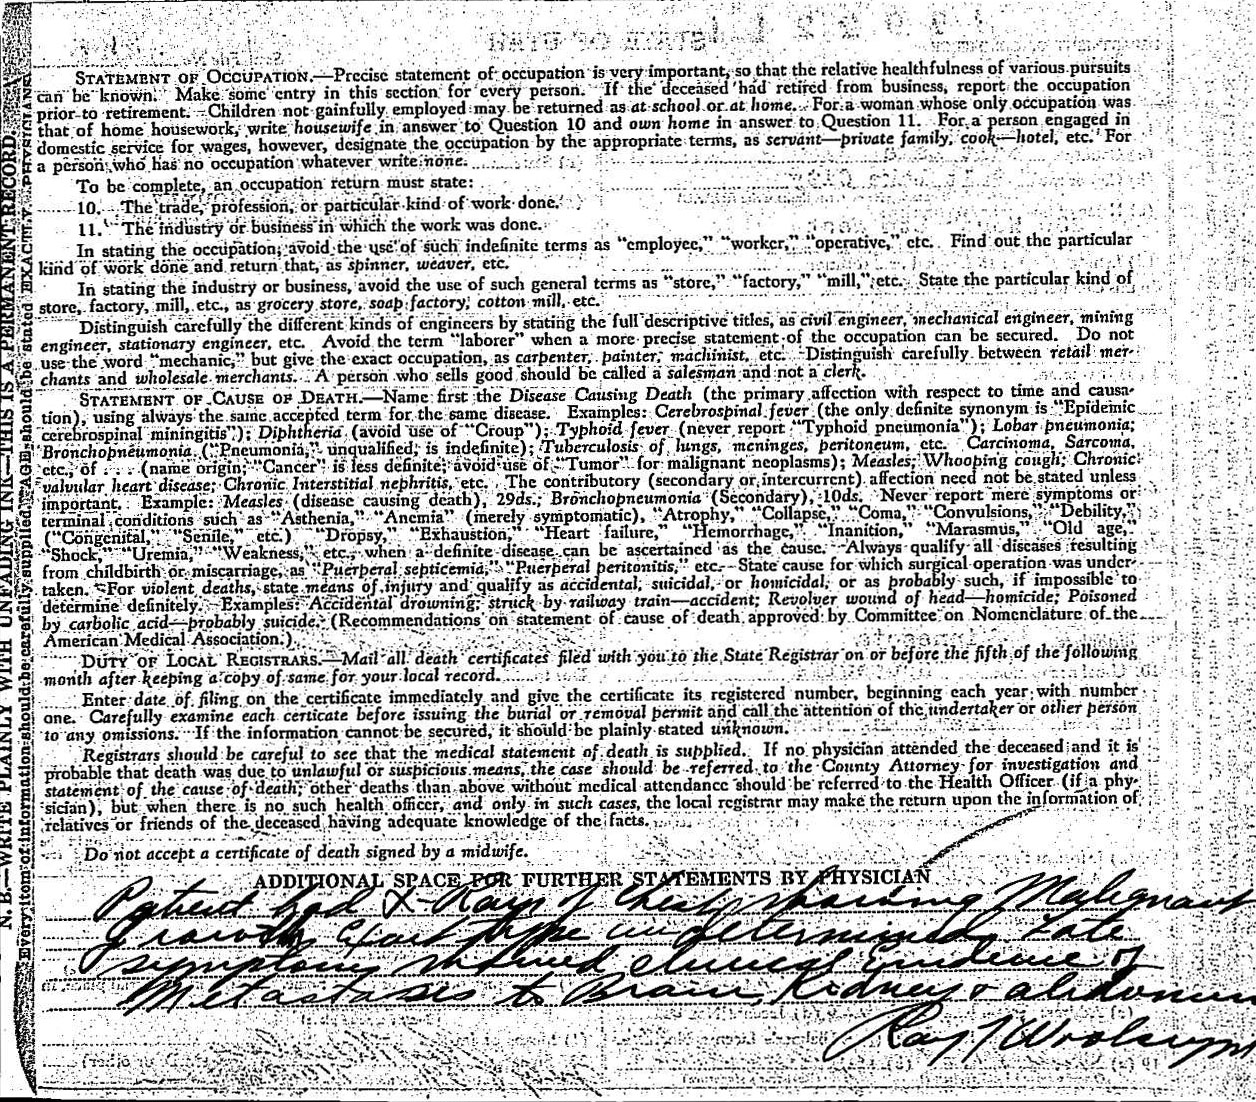 STATEMENT OF OCCUPATION.—Precise statement of occupation is very important, so that the relative healthfulness of various pursuits
can be known. Make some entry in this section for every person. If the deceased had retired from business, report the occupation
prior to retirement. Children not gainfully employed may be returned as at school or at home. For a woman whose only occupation was
that of home housework, write housewife in answer to Question 10 and own home in answer to Question 11. For a person engaged in
domestic service for wages, however, designate the occupation by the appropriate terms, as servant—private family, cook—hotel, etc. For
a person who has no occupation whatever write none.
To be complete, an occupation return must state:
10. The trade, profession, or particular kind of work done.
11. The industry or business in which the work was done.
In stating the occupation, avoid the use of such indefinite terms as “employee,” “worker,” “operative,” etc. Find out the particular
kind of work done and return that, as spinner, weaver, etc.
In stating the industry or business, avoid the use of such general terms as “store,” “factory,” “mill,” etc. State the particular kind of
store, factory, mill, etc., as grocery store, soap factory, cotton mill, etc.
Distinguish carefully the different kinds of engineers by stating the full descriptive titles, as civil engineer, mechanical engineer, mining
engineer, stationary engineer, etc. Avoid the term “laborer” when a more precise statement of the occupation can be secured. Do not
use the word “mechanic,” but give the exact occupation, as carpenter, painter, machinist, etc. Distinguish carefully between retail mer-
chants and wholesale merchants. A person who sells good should be called a salesman and not a clerk.
STATEMENT OF CAUSE OF DEATH.—Name first the Disease Causing Death (the primary affection with respect to time and causa-
tion), using always the same accepted term for the same disease. Examples: Cerebrospinal fever (the only definite synonym is “Epidemic
cerebrospinal miningitis”); Diphtheria (avoid use of “Croup”); Typhoid fever (never report “Typhoid pneumonia”); Lobar pneumonia;
Bronchopneumonia (“Pneumonia,” unqualified, is indefinite); Tuberculosis of lungs, meninges, peritoneum, etc. Carcinoma, Sarcoma,
etc., of . . . (name origin; “Cancer” is less definite; avoid use of “Tumor” for malignant neoplasms); Measles; Whooping cough; Chronic
valvular heart disease; Chronic Interstitial nephritis, etc. The contributory (secondary or intercurrent) affection need not be stated unless
important. Example: Measles (disease causing death), 29ds.; Bronchopneumonia (Secondary), 10ds. Never report mere symptoms or
terminal conditions such as “Asthenia,” “Anemia” (merely symptomatic), “Atrophy,” “Collapse,” “Coma,” “Convulsions,” “Debility,”
(“Congenital,” “Senile,” etc.) “Dropsy,” “Exhaustion,” “Heart failure,” “Hemorrhage,” “Inanition,” “Marasmus,” “Old age,”
“Shock,” “Uremia,” “Weakness,” etc., when a definite disease can be ascertained as the cause. Always qualify all diseases resulting
from childbirth or miscarriage, as “Puerperal septicemia,” “Puerperal peritonitis,” etc. State cause for which surgical operation was under-
taken. For violent deaths, state means of injury and qualify as accidental, suicidal, or homicidal, or as probably such, if impossible to
determine definitely. Examples: Accidental drowning; struck by railway train—accident; Revolver wound of head—homicide; Poisoned
by carbolic acid—probably suicide. (Recommendations on statement of cause of death approved by Committee on Nomenclature of the
American Medical Association.)
DUTY OF LOCAL REGISTRARS.—Mail all death certificates filed with you to the State Registrar on or before the fifth of the following
month after keeping a copy of same for your local record.
Enter date of filing on the certificate immediately and give the certificate its registered number, beginning each year with number
one. Carefully examine each certicate before issuing the burial or removal permit and call the attention of the undertaker or other person
to any omissions. If the information cannot be secured, it should be plainly stated unknown.
Registrars should be careful to see that the medical statement of death is supplied. If no physician attended the deceased and it is
probable that death was due to unlawful or suspicious means, the case should be referred to the County Attorney for investigation and
statement of the cause of death; other deaths than above without medical attendance should be referred to the Health Officer (if a phy-
sician), but when there is no such health officer, and only in such cases, the local registrar may make the return upon the information of
relatives or friends of the deceased having adequate knowledge of the facts.
Do not accept a certificate of death signed by a midwife.
ADDITIONAL SPACE FOR FURTHER STATEMENTS BY PHYSICIAN
Patient had X-Rays of Chest showing Malignant
Growth, Exact type undetermined. Late
symptoms showed clinical Evidence of
Metastases to Brain, Kidney &
Ray T Woolsey
N. B.—WRITE PLAINLY WITH UNFADING INK—THIS IS A PERMANENT RECORD.
Every item of information should be carefully supplied. AGE should be stated EXACTLY. PHYSICIANS